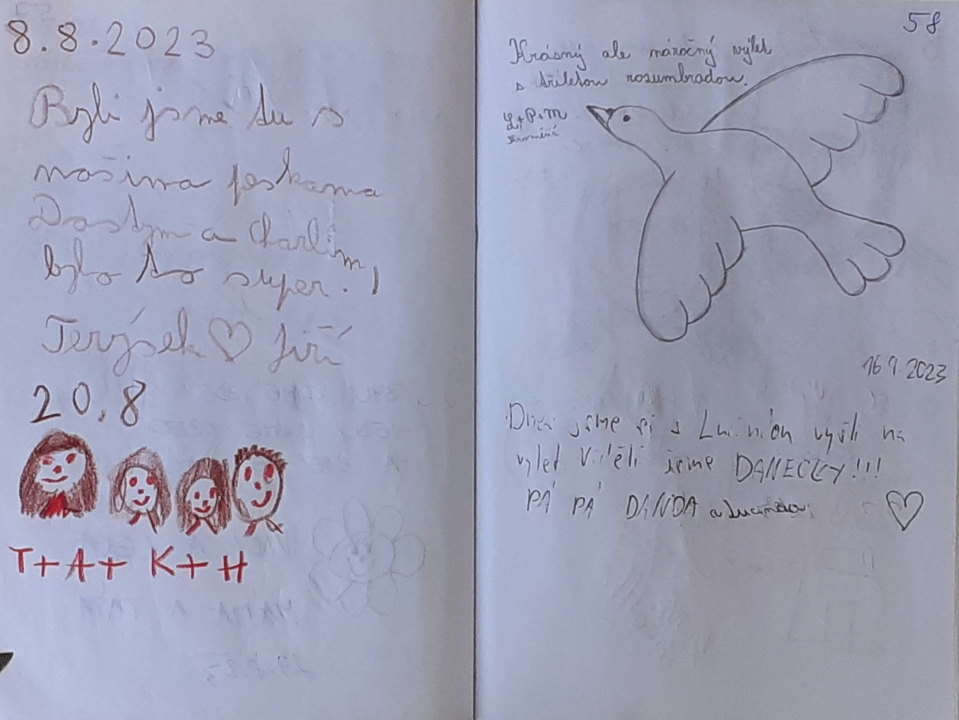 8.8.2023
Byli jsme tu s
našima pejskama
Dastym a Charlim,
bylo to super.!
Terýsek ♡ Jiří
20.8
T+A+ K+H
58
Krásný ale náročný výlet
s tříletou rozumbradou.
L+P+M
16 9.2023
Dnes jsme si s vyšli na
výlet Viděli jsme DANĚČKY!!!
PÁ PÁ DANDA a Lucinda